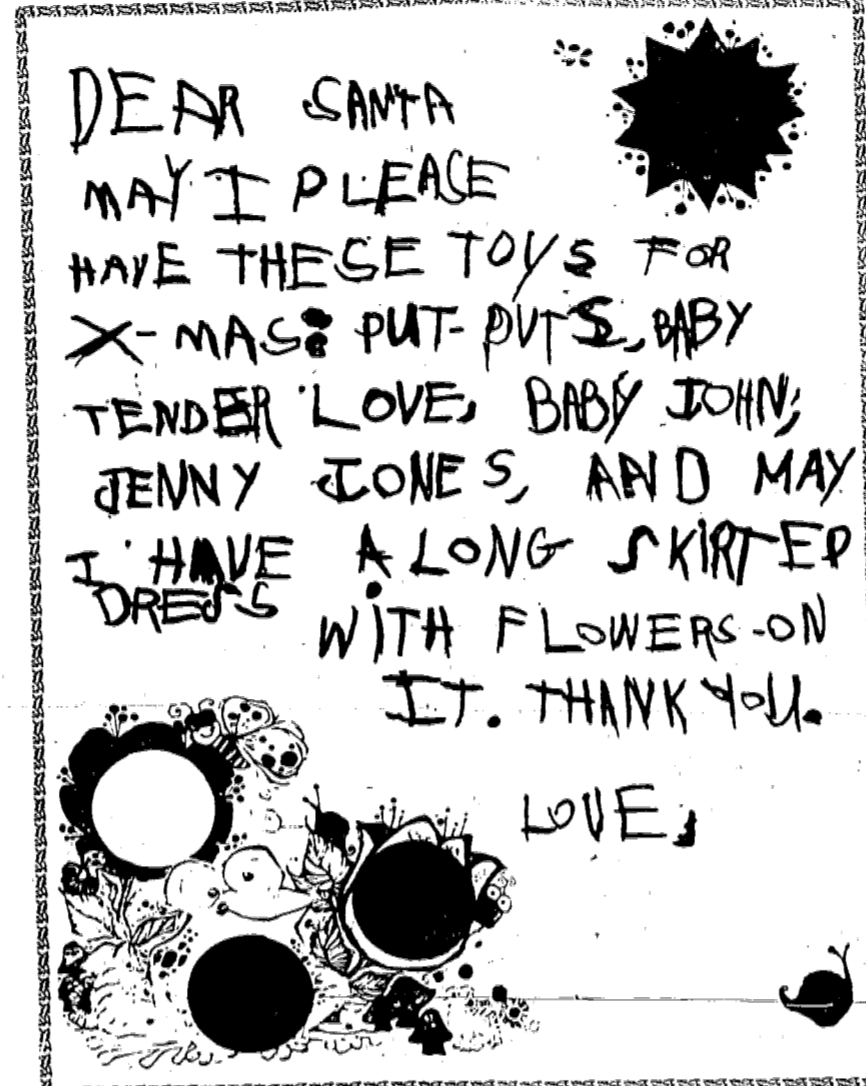 DEAR SANTA
MAY I PLEASE
HAVE THESE TOYS FOR
X-MAS: PUT-PUTS, BABY
TENDER LOVE, BABY JOHN,
JENNY JONES, AND MAY
I HAVE A LONG SKIRTED
DRESS
WITH FLOWERS-ON
IT. THANK YOU.
LOVE,